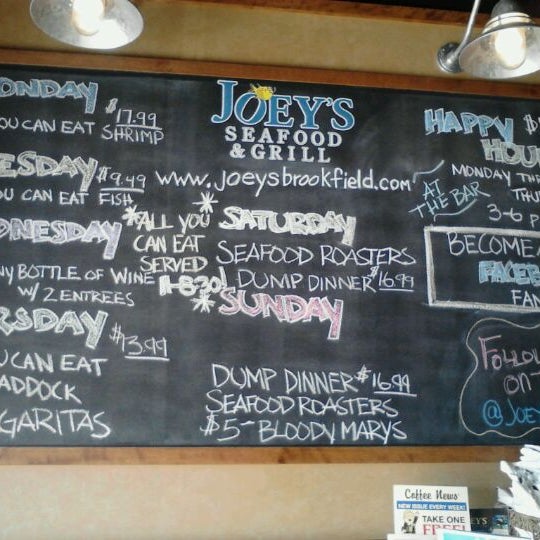 ONDAY
$17.99
OU CAN EAT SHRIMP
ESDAY
$9.49
OU CAN EAT FISH
DNESDAY
NY BOTTLE OF WINE
W/ 2 ENTREES
RSDAY
$13.99
U CAN EAT
ADDOCK
GARITAS
JOEY'S
SEAFOOD
& GRILL
www.joeysbrookfield.com
*ALL YOU
CAN EAT
SERVED
11-830!
SATURDAY
SEAFOOD ROASTERS
DUMP DINNER $16.99
*SUNDAY
DUMP DINNER $16.99
SEAFOOD ROASTERS
$5- BLOODY MARYS
HAPPY $
HOU
AT
THE BAR
MONDAY THR
THU
3-6 P
BECOME A
FACEB
FAN
FOLLO
ON
@JOEY
Coffee News
NEW ISSUE EVERY WEEK!
TAKE ONE
FREE!
EY'S